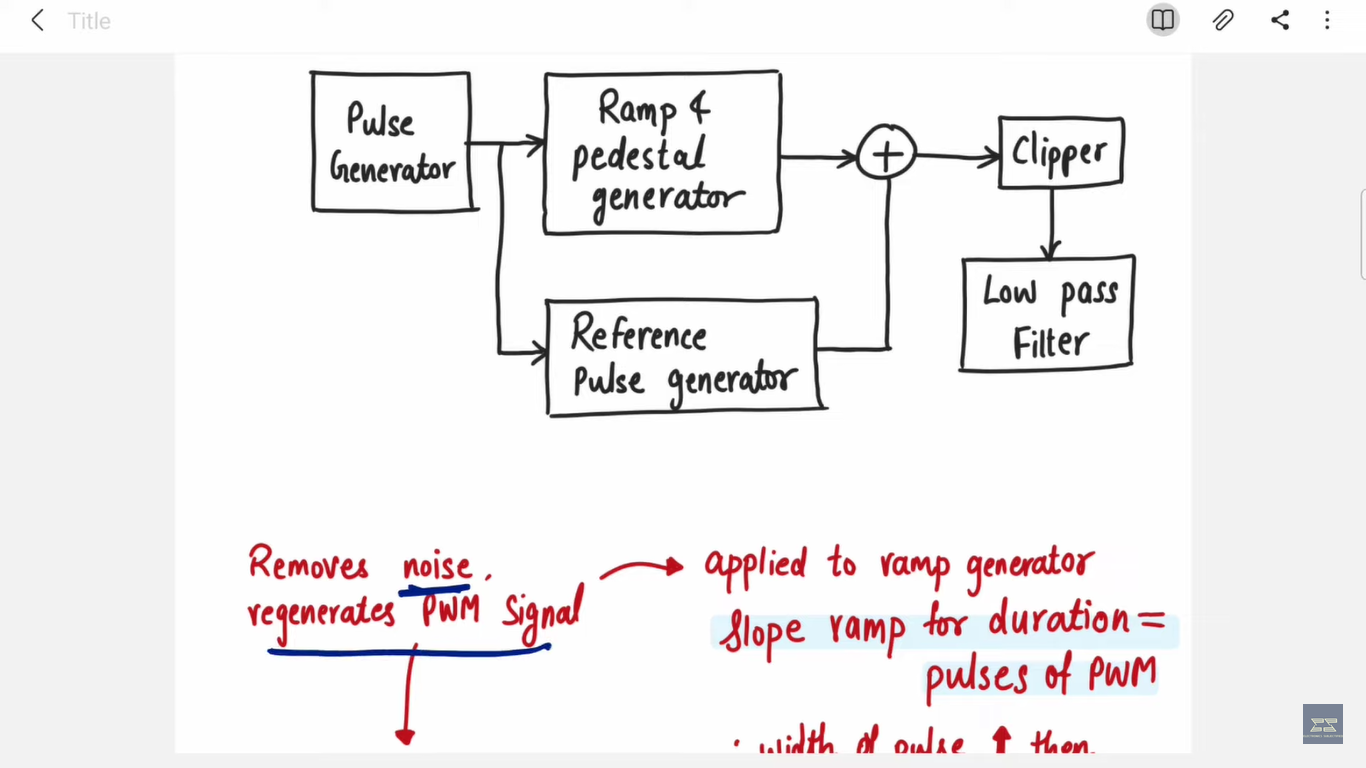 Title
Pulse
Generator
Ramp &
pedestal
generator
+
Clipper
Low pass
Filter
Reference
Pulse generator
Removes noise.
regenerates PWM Signal
applied to ramp generator
Slope ramp for duration =
pulses of PWM
∴ width of pulse ↑ then